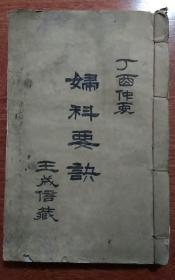 丁酉仲夏
婦科要訣
王成信藏